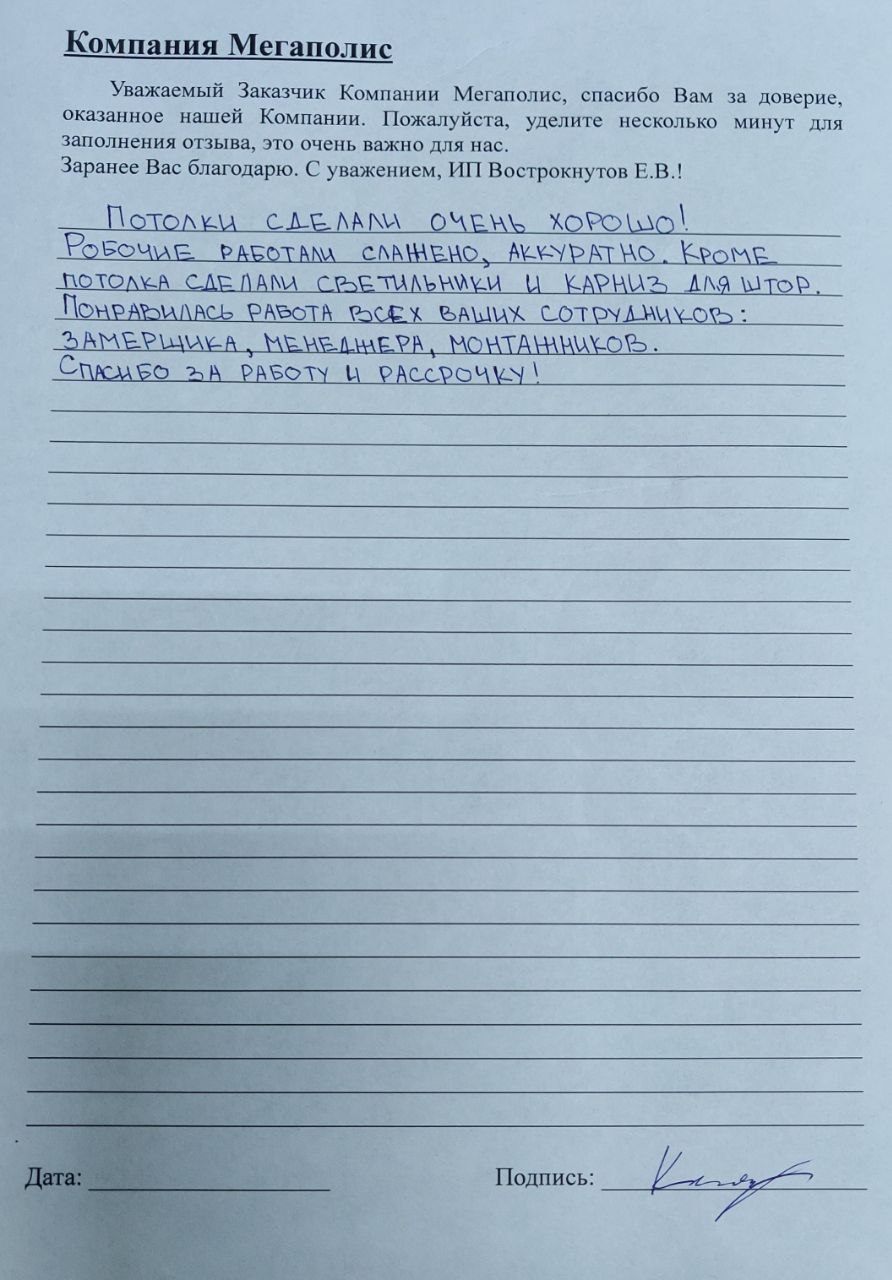 Компания Мегаполис
Уважаемый Заказчик Компании Мегаполис, спасибо Вам за доверие,
оказанное нашей Компании. Пожалуйста, уделите несколько минут для
заполнения отзыва, это очень важно для нас.
Заранее Вас благодарю. С уважением, ИП Вострокнутов Е.В.!
Потолки сделали очень хорошо!
Робочие работали слажено, аккуратно. Кроме
потолка сделали светильники и карниз для штор.
Понравилась работа всех ваших сотрудников:
замерщика, менеджера, монтажников.
Спасибо за работу и рассрочку!
Дата: Подпись: